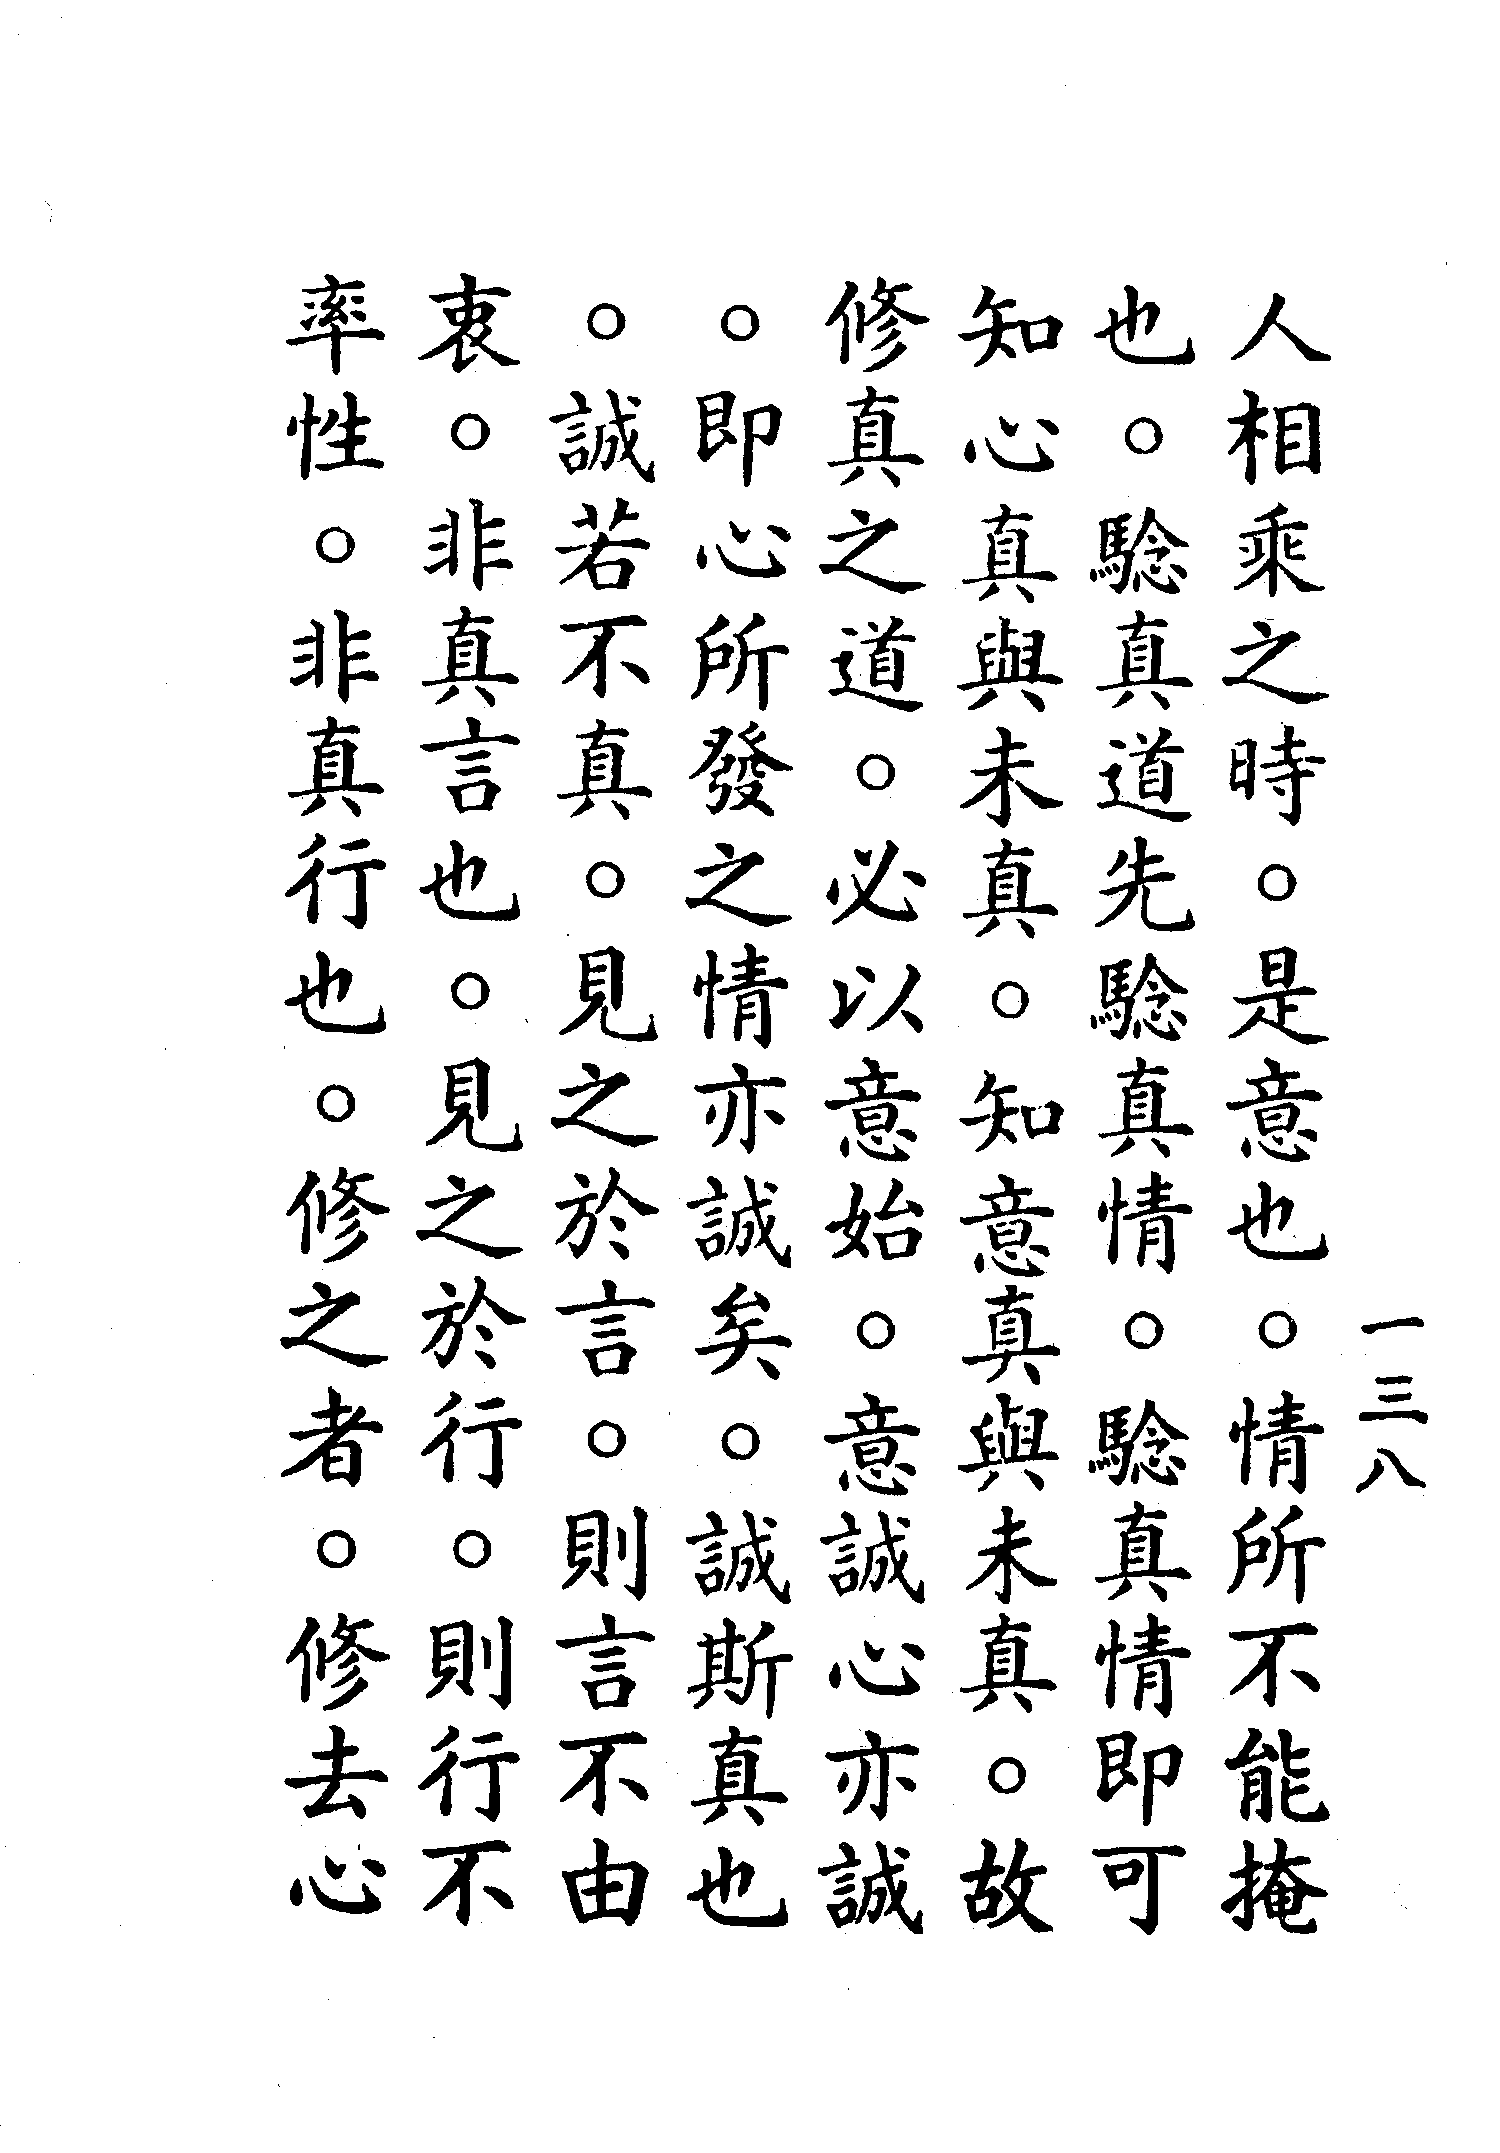 一三八
人相乘之時。是意也。情所不能掩
也。騐真道先騐真情。騐真情即可
知心真與未真。知意真與未真。故
修真之道。必以意始。意誠心亦誠
。即心所發之情亦誠矣。誠斯真也
。誠若不真。見之於言。則言不由
衷。非真言也。見之於行。則行不
率性。非真行也。修之者。修去心